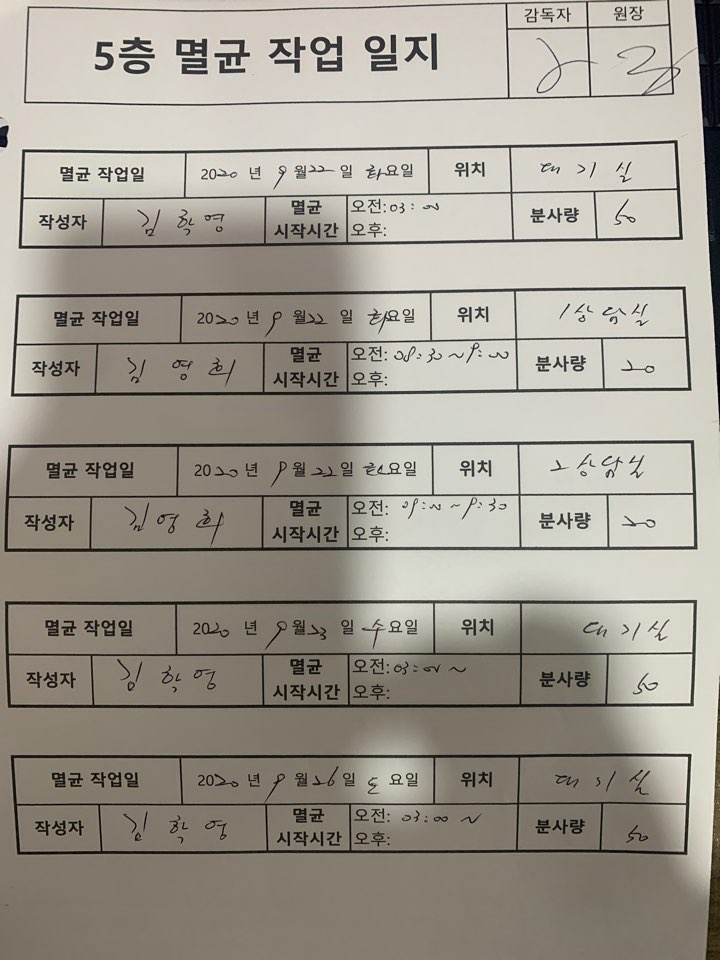 감독자 원장
5층 멸균 작업 일지
멸균 작업일 2020 년 9 월 22 일 화요일 위치 대기실
작성자 김학영 멸균 시작시간 오전: 03:00 오후: 분사량 50
멸균 작업일 2020 년 9 월 22 일 화요일 위치 1상담실
작성자 김영희 멸균 시작시간 오전: 08:30 ~ 9:00 오후: 분사량 20
멸균 작업일 2020 년 9 월 22 일 화요일 위치 2상담실
작성자 김영희 멸균 시작시간 오전: 09:00 ~ 9:30 오후: 분사량 20
멸균 작업일 2020 년 9 월 23 일 수요일 위치 대기실
작성자 김학영 멸균 시작시간 오전: 03:00 ~ 오후: 분사량 50
멸균 작업일 2020 년 9 월 26 일 토요일 위치 대기실
작성자 김학영 멸균 시작시간 오전: 03:00 ~ 오후: 분사량 50